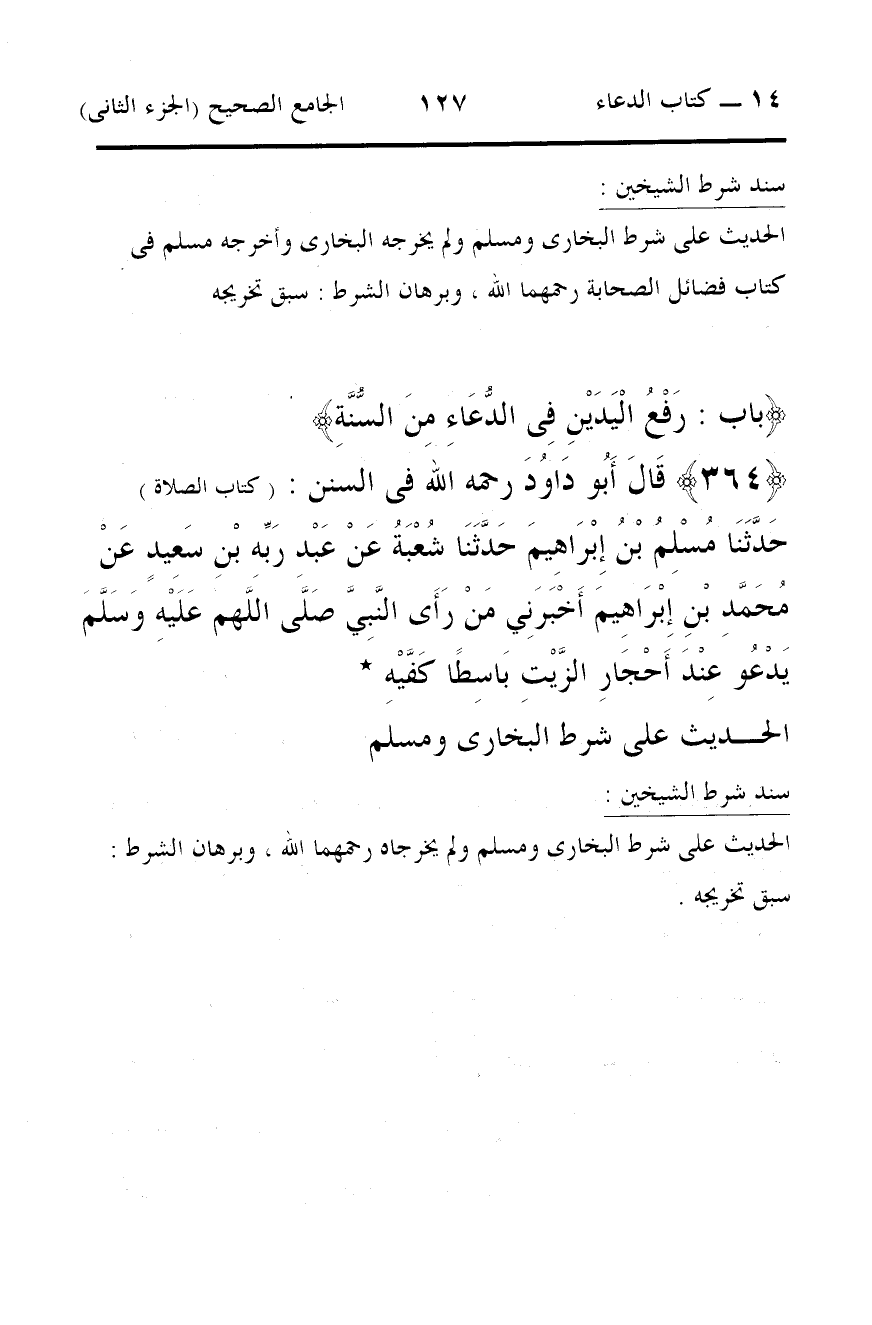 ١٤ ــ كتاب الدعاء ١٢٧ الجامع الصحيح (الجزء الثانى)
سند شرط الشيخين :
الحديث على شرط البخارى ومسلم ولم يخرجه البخارى وأخرجه مسلم فى
كتاب فضائل الصحابة رحمهما الله ، وبرهان الشرط : سبق تخريجه
﴿باب : رَفْعُ الْيَدَيْنِ فِى الدُّعَاءِ مِنَ السُّنَّةِ﴾
﴿٣٦٤﴾ قَالَ أَبُو دَاوُدَ رحمه الله فى السنن : ( كتاب الصلاة )
حَدَّثَنَا مُسْلِمُ بْنُ إِبْرَاهِيمَ حَدَّثَنَا شُعْبَةُ عَنْ عَبْدِ رَبِّهِ بْنِ سَعِيدٍ عَنْ
مُحَمَّدِ بْنِ إِبْرَاهِيمَ أَخْبَرَنِي مَنْ رَأَى النَّبِيَّ صَلَّى اللَّهم عَلَيْهِ وَسَلَّمَ
يَدْعُو عِنْدَ أَحْجَارِ الزَّيْتِ بَاسِطًا كَفَّيْهِ *
الحـــديث على شرط البخارى ومسلم
سند شرط الشيخين :
الحديث على شرط البخارى ومسلم ولم يخرجاه رحمهما الله ، وبرهان الشرط :
سبق تخريجه .